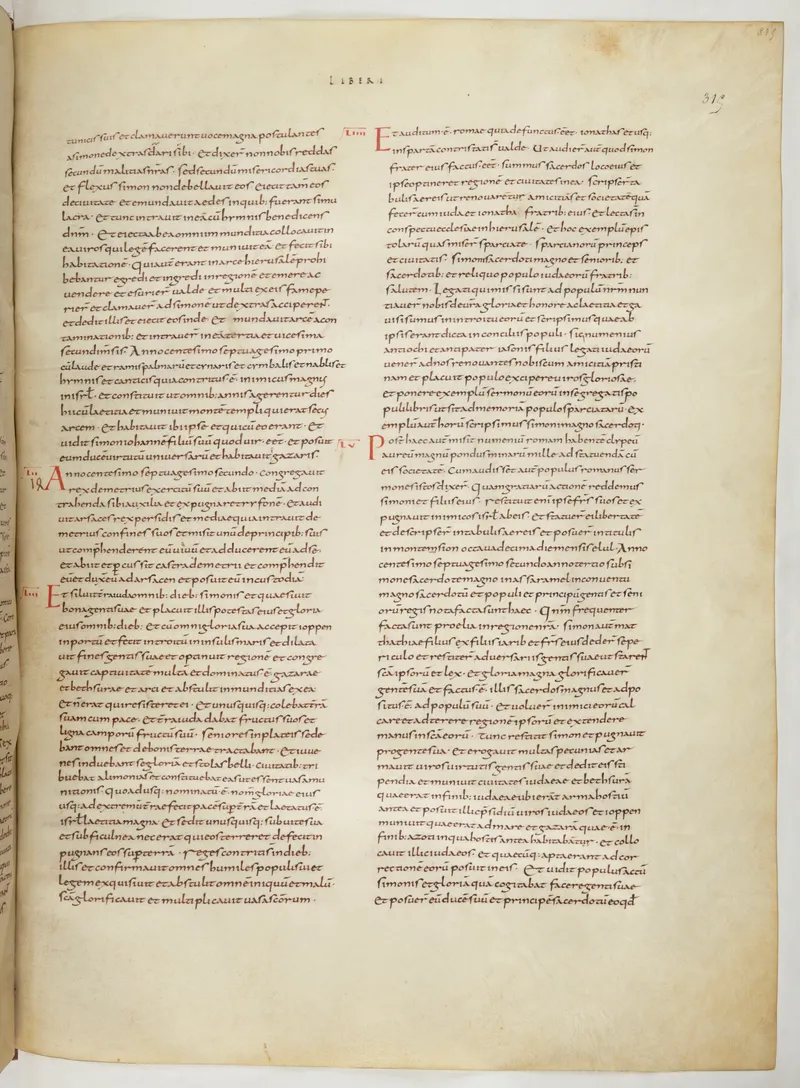 LIBERI
319
tunicis suis et clamauerunt uoce magna postulantes
a simone dextras dari sibi · Et dixer̄ non nobis reddas
secundū malitias nr̄as · sed secundū misericordias tuas ·
et flexus simon non debellauit eos eiecit tam̄ eos
de ciuitate · et emundauit aedes in quib; fuerant simu
lacra · Et tunc intrauit in eā cū hymnis benedicens
dnm̄ · Et eiecta ab ea omni inmunditia collocauit in
ea uiros qui legē facerent et muniuit eā · et fecit sibi
habitationē · Qui autē erant in arce hierusalē prohi
bebantur egredi et ingredi in regionē et emere ac
uendere et esurier̄ ualde et multi ex eis fame pe
rier̄ et clamauer̄ ad simonē ut dextras acciperent ·
et dedit illis et eiecit eos inde · Et mundauit arcē a con
taminationib; et intrauer̄ in eā tertia et uicesima
secundi m̄sis · Anno centesimo septuagesimo primo
cū laude et ramis palmarū et cynaris et cymbalis et nablis et
hymnis et canticis quia contritus ē inimicus magnus
in isrl̄ · et constituit ut omnib; annis agerentur dies
hii cū laetitia et muniuit montē templi qui erat secus
arcem · Et habitauit ibi ipse et qui cū eo erant · Et
uidit simon iohannē filiū suū quod uir eēt · et posuit
eum ducē uirtutū uniuersarū et habitauit in gazaris ·
LII
Anno centesimo septuagesimo secundo · congregauit
rex demetrius exercitū suū et abiit mediā ad con
trahenda sibi auxilia ut expugnaret tryfonē · Et audi
uit arsaces rex persidis et mediae quia intrauit de
metrius confines suos et misit unū de principib; suis
ut comp̄henderent eū uiuū et adducerent eū ad se ·
et abiit et percussit castra demetrii et comp̄hendit
eū et duxit eū ad arsacen et posuit eū in custodiā ·
LIII
Et siluit t̄ra iuda omnib; dieb; simonis et quaesiuit
bona genti suae · et placuit illis potestas eius et gloria
eius omnib; dieb; · Et cū omni gloria sua accepit ioppen
in portū et fecit introitū in insulis maris et dilata
uit fines gentis suae et optinuit regionē · et congre
gauit captiuitatē multā et dominatus ē gazarae
et bethsurae et arci et abstulit inmunditias ex ea ·
Et n̄ erat qui resisteret ei · Et unusquisq; colebat t̄rā
suam cum pace · et t̄ra iuda dabat fructus suos et
ligna camporū fructū suū · seniores in plateis sede
bant omnes et de bonis terrae tractabant · Et iuue
nes induebant se gloria et stolas belli · ciuitatib; tri
buebat alimonias et constituebat eas ut essent uasa mu
nitionis quoadusq; nominatū ē nom̄ gloriae eius
usq; ad extremū t̄rae fecit pacē sup̄ t̄rā et laetatus ē
isrl̄ laetitia magna · Et sedit unusquisq; sub uite sua
et sub ficulnea nec erat qui eos terreret defecit in
pugnans eos sup̄ terrā · reges contriti s̄ in dieb;
illis et confirmauit omnes humiles populi sui et
legem exquisiuit et abstulit omnē iniquū et malū ·
sc̄a glorificauit et multiplicauit uasa sc̄orum ·
LIIII
Et auditum ē romae quia defunctus eēt ionathas et usq;
in spartā contristati s̄ ualde · Ut audier̄ aūt quod simon
frater eius factus eēt summus sacerdos loco eius et
ipse optineret regionē et ciuitates in ea · scripser̄ ta
bulis aereis ut renouarent amicitias et societatē quā
fecer̄ cum iuda et ionatha fratrib; eius · Et lectae s̄ in
conspectu ecclesiae in hierusalē · Et hoc exemplū epis
tolarū quas miser̄ spartiate · spartianorū princeps
et ciuitatis · simoni sacerdoti magno et seniorib; et
sacerdotib; et reliquo populo iudaeorū fratrib;
salutem · Legati qui missi sunt ad populū nr̄m nun
tiauer̄ nobis de ura gloria et honore ac laetitia et ga
uisi sumus in introitu eorū et scripsimus quae ab
ipsis erant dicta in conciliis populi · sic numenius
antiochi et antipater iasonis filius legati iudaeorū
uener̄ ad nos renouantes nobiscum amicitiā pristi
nam et placuit populo excipere uiros gloriosae ·
et ponere exemplū sermonū eorū in segregatis po
puli libris ut sit ad memoriā populo spartiatarū · Ex
emplū aūt horū scripsimus simoni magno sacerdoti ·
LV
Post haec aūt misit numeniū romam habentē clypeū
aureū magnū pondus minarū mille ad statuenda cū
eis societatē · Cum audisset aūt populus romanus ser
mones istos dixer̄ · Quam gratiarū actionē reddemus
simoni et filiis eius · restituit enī ipse fr̄s suos et ex
pugnauit inimicos isrl̄ ab eis · et statuer̄ ei libertatē
et descripser̄ in tabulis aereis et posuer̄ in titulis
in monte sion octaua decima die mensis elul · Anno
centesimo septuagesimo secundo anno tertio sub si
mone sacerdote magno in asaramel in conuentu
magno sacerdotū et populi et principū gentis et seni
orū regionis nota facta sunt haec · Qnm̄ frequenter
facta sunt proelia in regione nr̄a · simon aūt mat
thathiae filius ex filiis iarib et fr̄s eius dederunt se pe
riculo et restiter̄ aduersariis gentis suae ut starent
sc̄a ipsorū et lex · Et gloria magna glorificauer̄
gentē suā et factus ē illis sacerdos magnus et adpo
situs ē ad populū suū · Et uoluer̄ inimici eorū cal
care et adterere regionē ipsorū et extendere
manus in sc̄a eorū · Tunc restitit simon et pugnauit
pro gente sua · Et erogauit multas pecunias et ar
mauit uiros uirtutis gentis suae et dedit eis sti
pendia et muniuit ciuitates iudaeae et bethsurā
quae erat in finib; iudaeae ubi erāt arma hostiū
antea et posuit illic p̄sidiū uiros iudaeos et ioppen
muniuit quae erat ad mare et gazarā quae ē in
finib; azoti in qua hostes antea habitabāt · et collo
cauit illic iudaeos · et quaecūq; apta erant ad cor
rectionē eorū posuit in eis · Et uidit populus actū
simonis et gloriā quā cogitabat facere genti suae
Et posuer̄ eū ducē suū et principē sacerdotū eo qđ